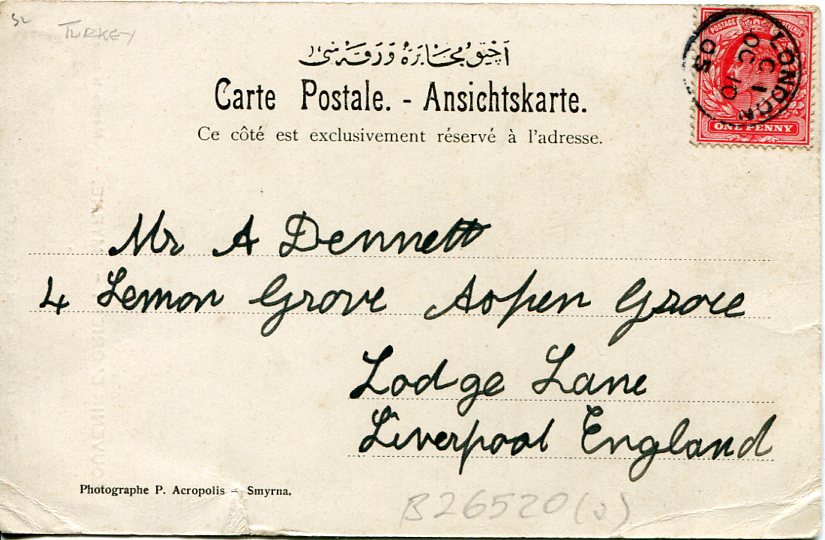 TURKEY
آچيق مخابره ورقه سی
Carte Postale. - Ansichtskarte.
Ce côté est exclusivement réservé à l'adresse.
POSTAGE REVENUE
ONE PENNY
LONDON
OC 10
05
Mr A Dennett
4 Lemon Grove Aspen Grove
Lodge Lane
Liverpool England
Photographe P. Acropolis – Smyrna.
B26520(J)